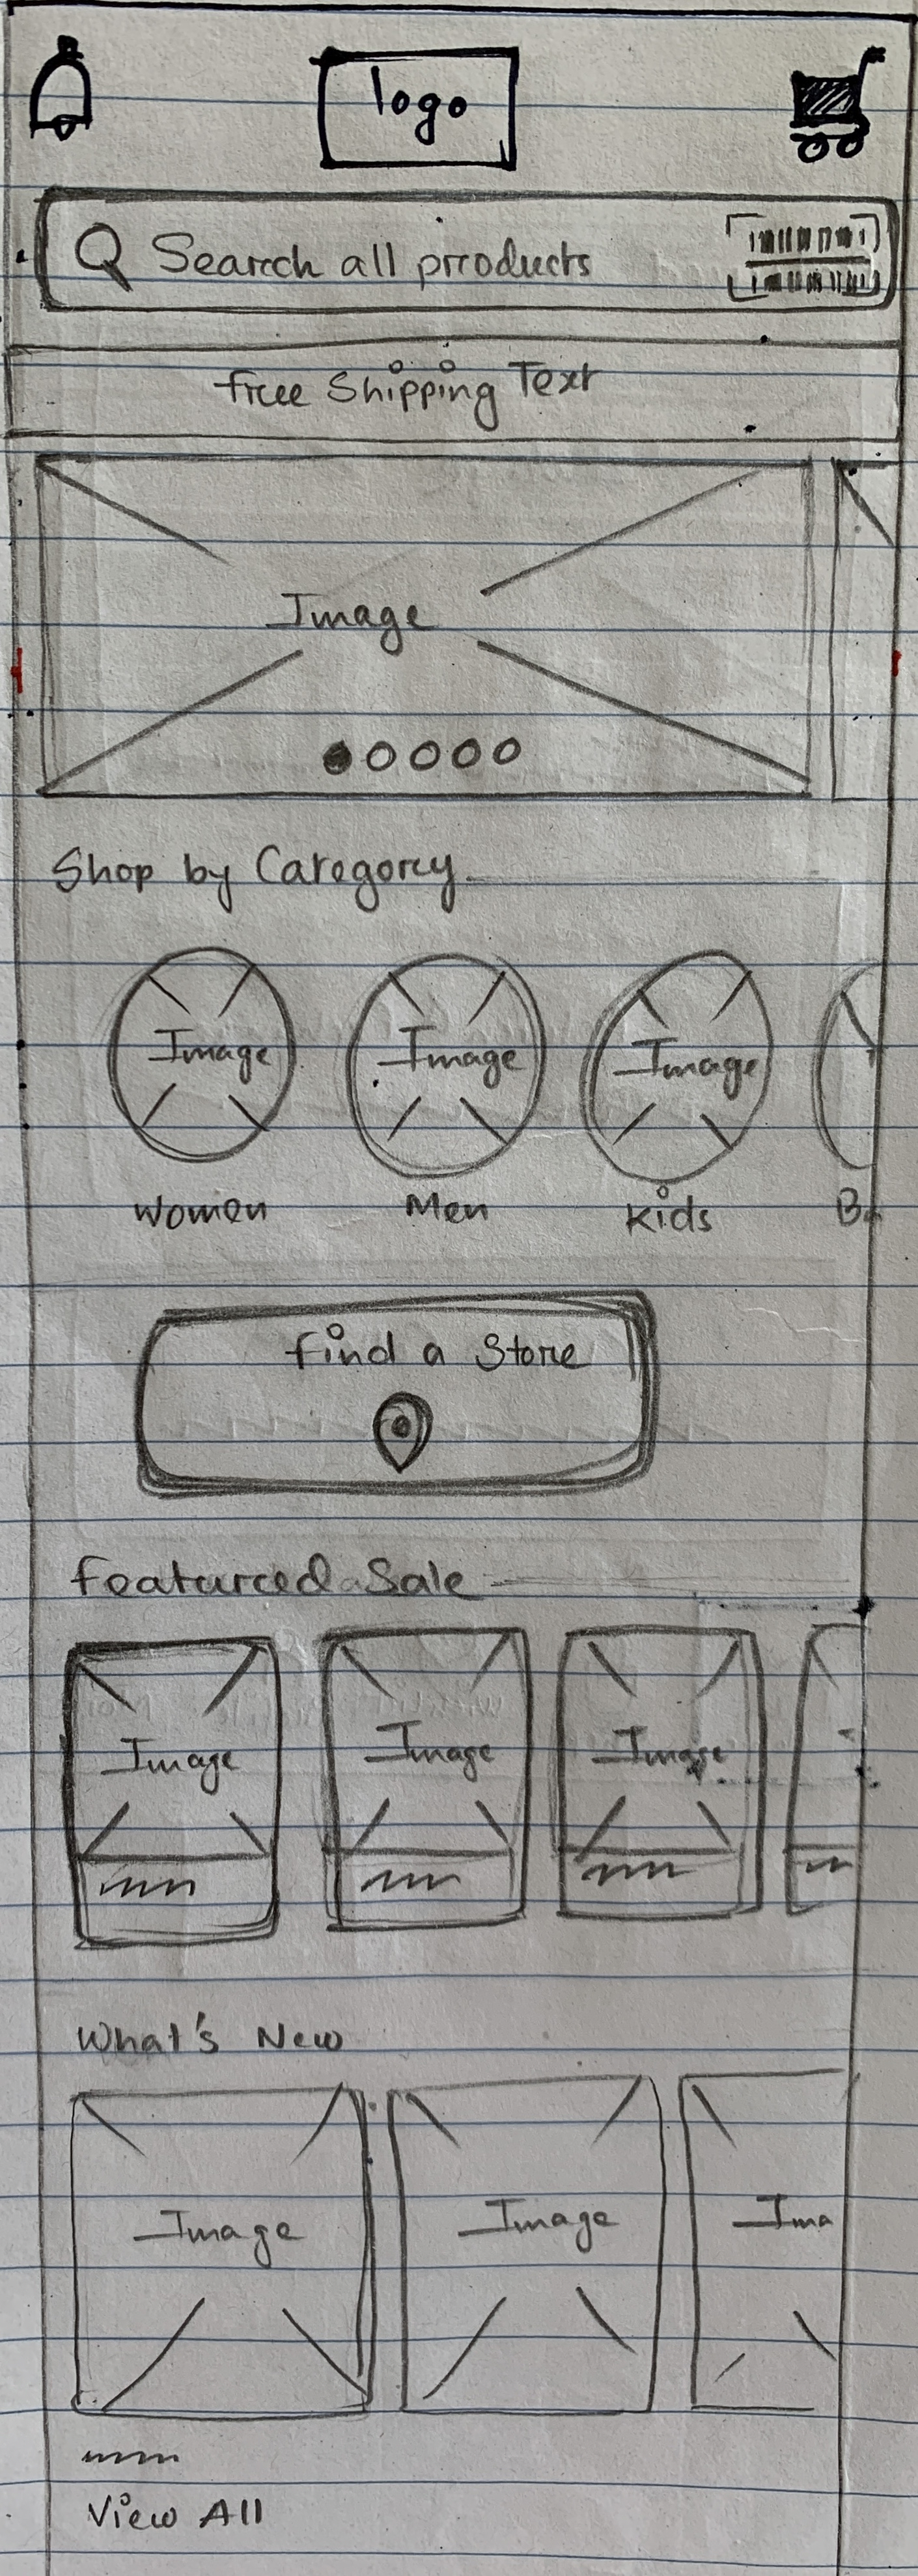 logo
Search all products
Free Shipping Text
Image
Shop by Category
Image Image Image
Women Men Kids
Find a Store
Featured Sale
Image Image Image
What's New
Image Image Ima
View All